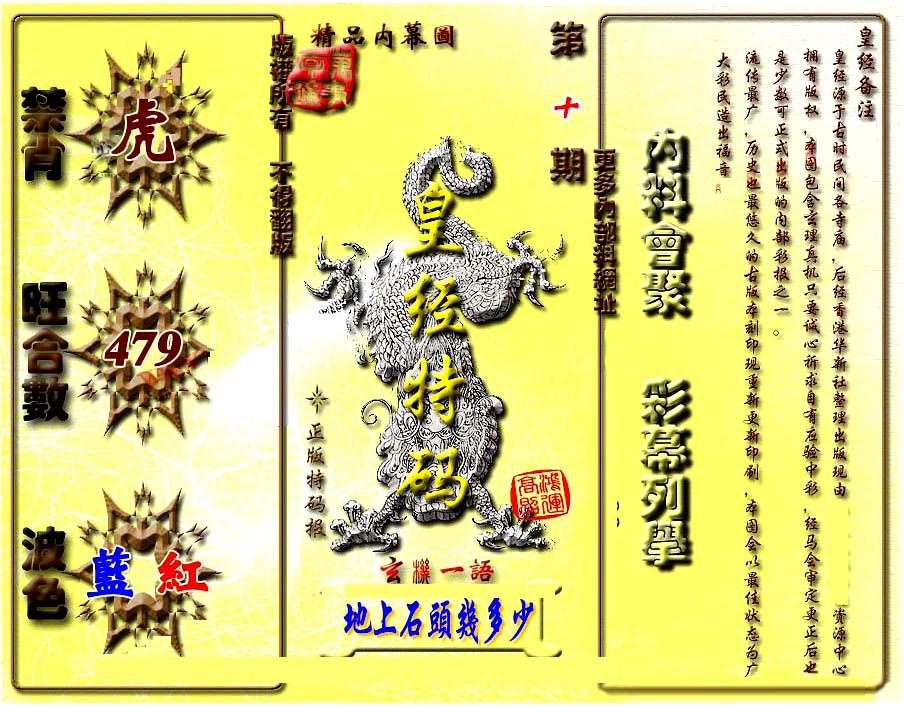 精品内幕圖
第
十
期
版權所有 不得翻版
更多內部料網址
皇经特码
正版特码报
鸿運高照
玄機一語
地上石頭幾多少
禁肖
虎
旺合數
479
波色
藍 紅
内料會聚
彩幕列舉
皇经备注
皇经源于古时民间各寺庙，后经香港华新社整理出版现由 资源中心
拥有版权，本图包含玄理真机只要诚心祈求自有应验中彩，经马会审定更正后也
是少数可正式出版的内部彩报之一。
流传最广，历史也最悠久的古版本刻印现重新更新印刷，本图会以最佳状态为广
大彩民造出福音。